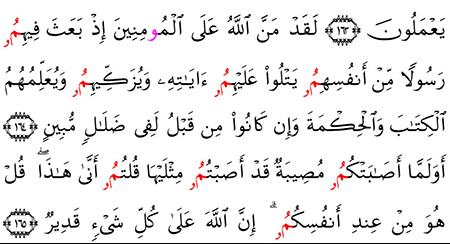 يَعْمَلُونَ ۝١٦٣ لَقَدْ مَنَّ اللَّهُ عَلَى الْمُومِنِينَ إِذْ بَعَثَ فِيهِمُۥ
رَسُولًا مِّنْ أَنفُسِهِمُۥ يَتْلُوا۟ عَلَيْهِمُۥ ءَايَٰتِهِۦ وَيُزَكِّيهِمُۥ وَيُعَلِّمُهُمُ
الْكِتَٰبَ وَالْحِكْمَةَ وَإِن كَانُوا۟ مِن قَبْلُ لَفِى ضَلَٰلٍ مُّبِينٍ ۝١٦٤
أَوَلَمَّا أَصَٰبَتْكُمُۥ مُصِيبَةٌ قَدْ أَصَبْتُمُۥ مِثْلَيْهَا قُلْتُمُۥ أَنَّىٰ هَٰذَا ۖ قُلْ
هُوَ مِنْ عِندِ أَنفُسِكُمُۥ ۗ إِنَّ اللَّهَ عَلَىٰ كُلِّ شَىْءٍ قَدِيرٌ ۝١٦٥